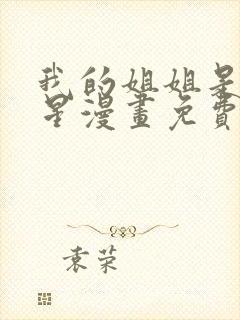 我的姐姐是
星漫畫免費
袁荣